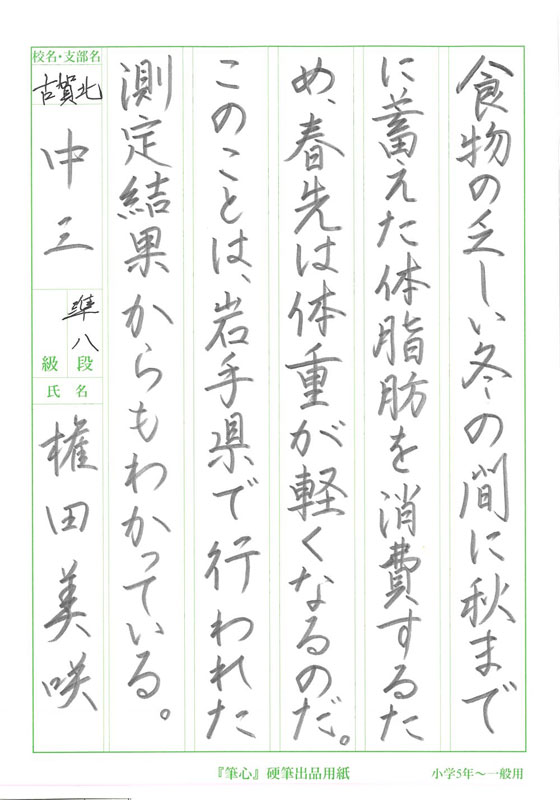 食物の乏しい冬の間に秋まで
に蓄えた体脂肪を消費するた
め、春先は体重が軽くなるのだ。
このことは、岩手県で行われた
測定結果からもわかっている。
校名・支部名
古賀北
中三
準八
段級
氏名
権田美咲
『筆心』硬筆出品用紙
小学5年〜一般用